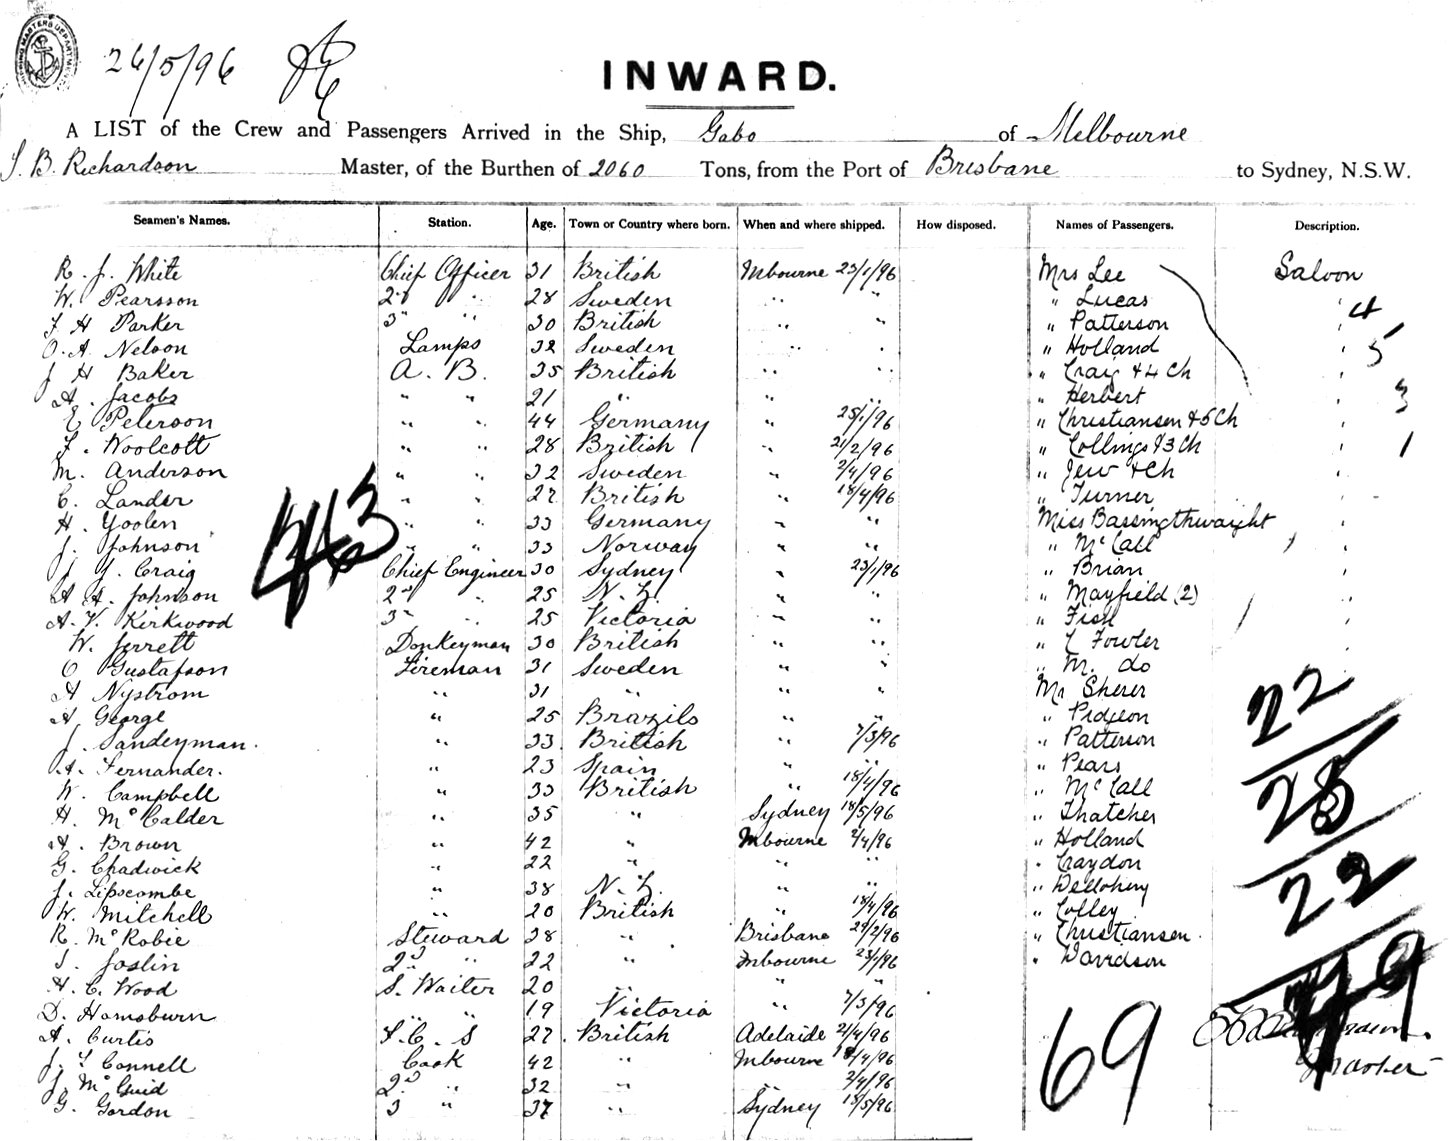 SHIPPING MASTERS DEPARTMENT
26/5/96
INWARD.
A LIST of the Crew and Passengers Arrived in the Ship, Gabo of Melbourne
J. B. Richardson Master, of the Burthen of 2060 Tons, from the Port of Brisbane to Sydney, N.S.W.
Seamen's Names. Station. Age. Town or Country where born. When and where shipped. How disposed. Names of Passengers. Description.
R. J. White Chief Officer 31 British Mbourne 23/1/96 Mrs Lee Saloon
W. Pearsson 2d " 28 Sweden " " " Lucas "
J H Parker 3d " 30 British " " " Patterson " 4
O. A. Nelson Lamps 32 Sweden " " " Holland " 5
J H Baker A. B. 35 British " " " Craig & 4 Ch "
A. Jacobs " " 21 " " " " Herbert " 3
E Peterson " " 44 Germany " 25/1/96 " Christiansen & 5 Ch "
J. Woolcott " " 28 British " 21/2/96 " Collings & 3 Ch " 1
M. Anderson " " 32 Sweden " 2/4/96 " Jew & Ch "
C. Lander " " 27 British " 18/4/96 " Turner "
H. Yoolen " " 33 Germany " " Miss Bassingthwaight "
J. Johnson " " 33 Norway " " " McCall "
J J. Craig Chief Engineer 30 Sydney " 23/1/96 " Brian "
A A. Johnson 2d " 25 N. Z. " " " Mayfield (2) "
A. V. Kirkwood 3d " 25 Victoria " " " Fish "
W. Jerrett Donkeyman 30 British " " " C Fowler "
C Gustafson Fireman 31 Sweden " " " M. do "
A Nystrom " 31 " " " Mr Sherer
A. George " 25 Brazils " " " Pidgeon
J. Sandeyman. " 33 British " 7/3/96 " Patterson
A. Fernander. " 23 Spain " " " Pears
W. Campbell " 33 British " 18/4/96 " McCall
H. McCalder " 35 " Sydney 18/5/96 " Thatcher
A. Brown " 42 " Mbourne 2/4/96 " Holland
G. Chadwick " 22 " " " " Craydon
J. Lipscombe " 38 N. Z. " " " Dellohery
W. Mitchell " 20 British " 18/4/96 " Colley
R. McRobie Steward 38 " Brisbane 29/2/96 " Christiansen.
J. Joslin 2d " 22 " Mbourne 23/1/96 " Davidson
H. C. Wood S. Waiter 20 " " "
D. Hornsburn " " 19 Victoria " 7/3/96
A. Curtis F. C. S 27 British Adelaide 21/4/96
J. J Connell Cook 42 " Mbourne 18/4/96
J. McGuid 2d " 32 " " 2/4/96
G. Gordon 3 " 37 " Sydney 18/5/96
43
22
25
22
69
Master